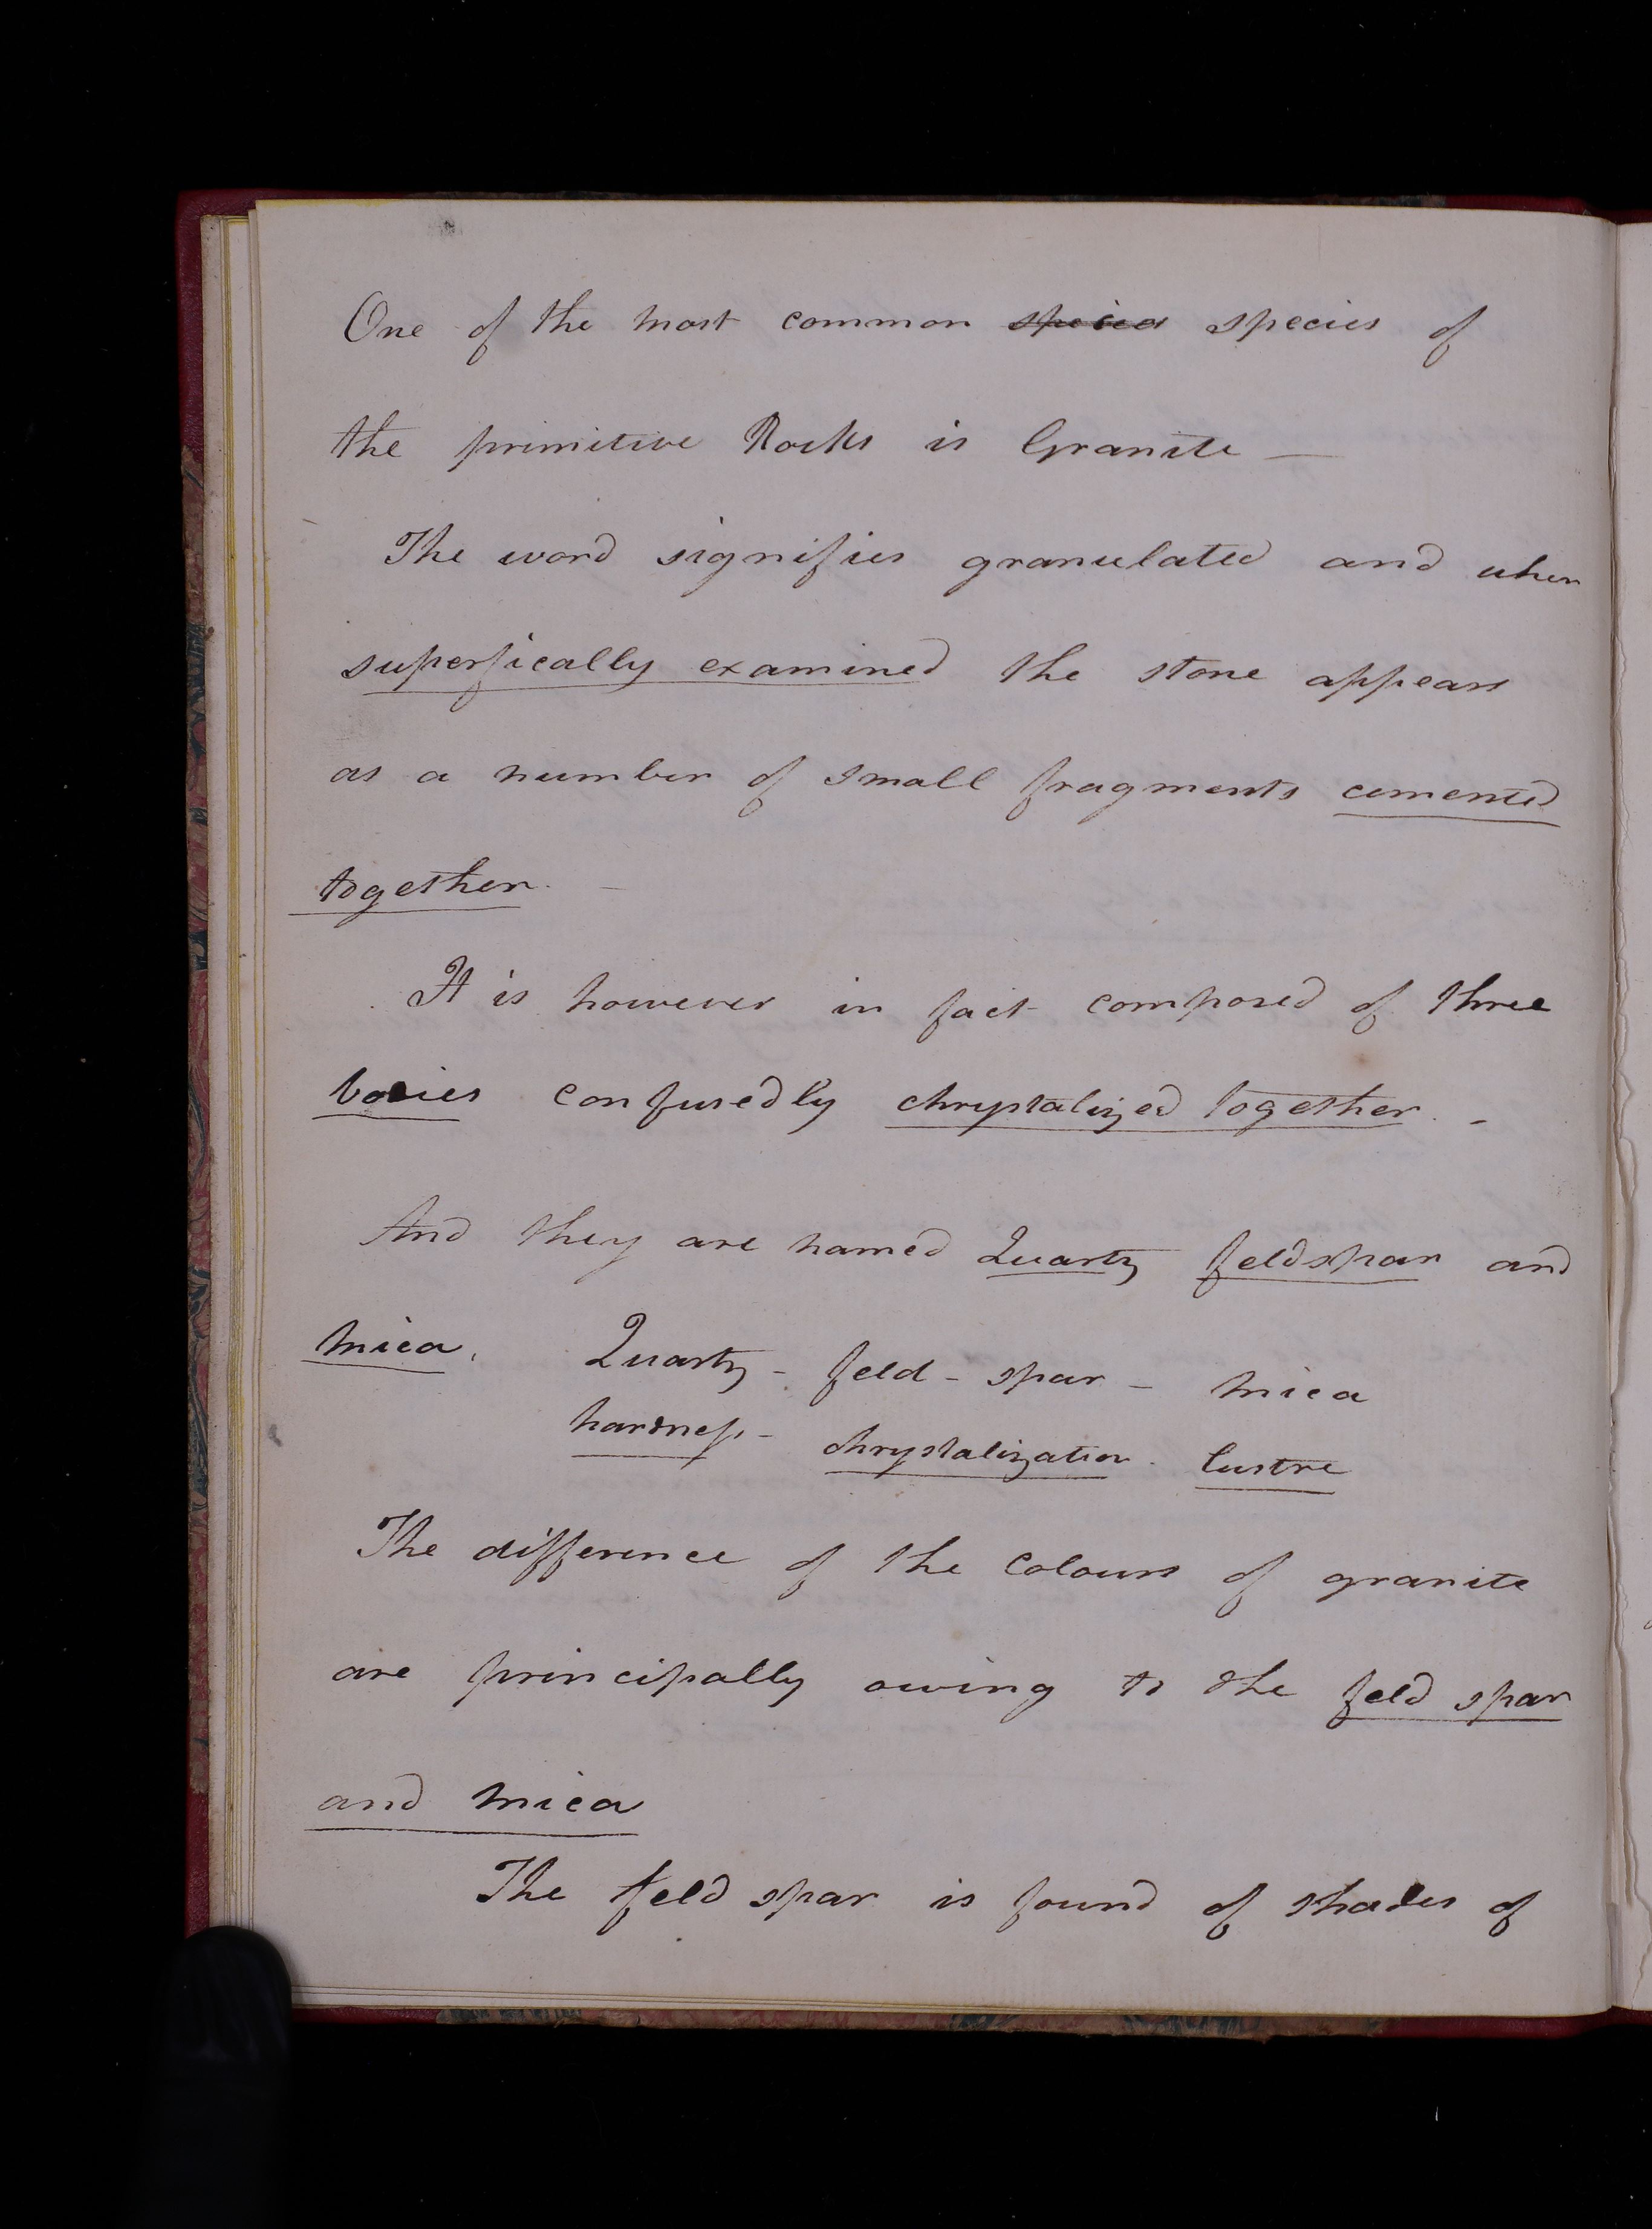 One of the most common species of
the primitive Rocks is Granite —
The word signifies granulated and when
superfically examined the stone appears
as a number of small fragments cemented
together. —
It is however in fact composed of three
bodies confusedly chrystalized together. -
And they are named Quartz feldspar and
mica. Quartz - feld - spar - mica
hardness - chrystalization. lustre
The difference of the colours of granite
are principally owing to the feld spar
and mica
The feld spar is found of shades of